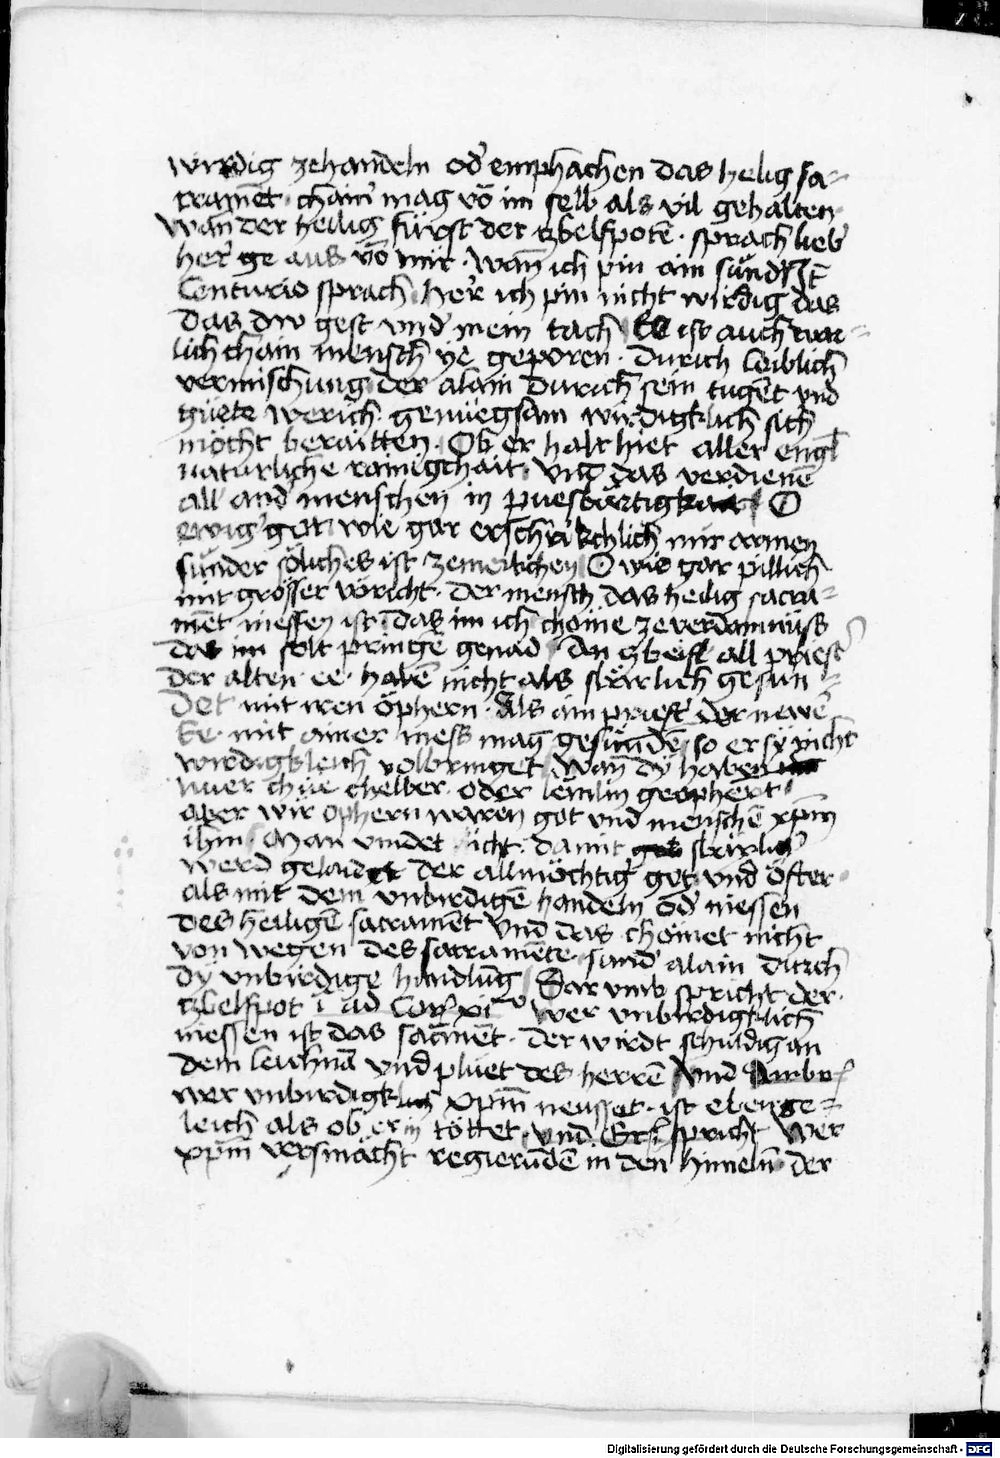 wirdig zehandeln od' emphachen das heilig sa=
crame͞t · chain' mag vō im selb als vil gehalten
wan der heilig fürst der tzbelfpotē · sprach lieb'
her' ge aus vō mir · wan̄ ich pin ain sünd'
Centurio sprach · her' ich pin nicht wirdig das
das dw gest vnd' mein tach Es ist auch war=
lich chain mensch ye geporen · durich leiblich
vermischung der alain durich sein tugēt vnd
güete werich · genüegsam wirdigklich sich
möcht beraitten · Ob er halt hiet aller engl
natürliche rainigchait · Vnd das verdienē
all and' menschen in puesbärtigkait O
ewig' got wie gar erschrikchlich mir armen
sünder söliches ist O wie gar pillich
mit grosser vöricht · der mensch das heilig sacra=
mēt niessen ist · das im ich chöme ze verdamnüss
das im solt pringē genad · all priest'
der alten ee · habē nicht als swärlich gesün=
det mit iren öphern · Als ain priest' der newē
Ee · mit ainer mess mag gesündē so er sy nicht
wirdigkleich volbringet Wan̄ dy haben
nuer chüe chelber · oder lemlin geophert
aber wir ophern waren got vnd menschē xp̄m
ihm̄ · Man vindet icht · damit swärlich'
werd gelaidigt der allmöchtig' got vnd öfter
als mit dem vnbirdigē handeln od' niessen
des heiligē sacramēt Vnd das chömet nicht
von wegen des sacramēte · sund' alain durch
dy vnbirdige handlūg Dar vmb spricht der
tzbelfpot i ad Cor xi° Wer vnbirdigklich
niessen ist das sacramēt · der wirdt schuldig an
dem leichnā vnd pluet des herrē Vnd Ambr
wer vnbirdigklich xp̄m neusset · ist ebenge=
leich als ob er in töttet · vnd spricht Wer
xp̄m versmächt regierūdē in den himeln · der
Digitalisierung gefördert durch die Deutsche Forschungsgemeinschaft - DFG